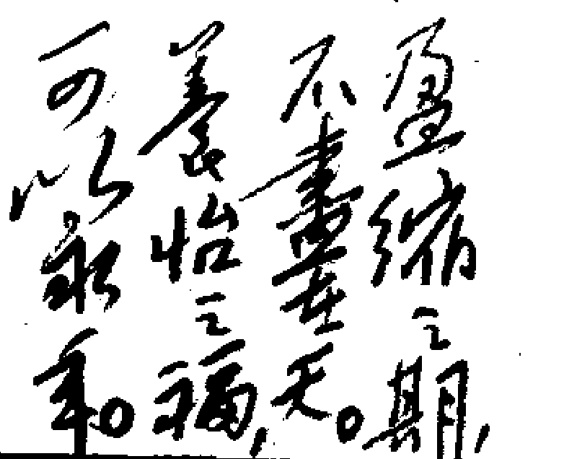 盈缩之期，
不尽在天。
養怡之福，
可以永年。